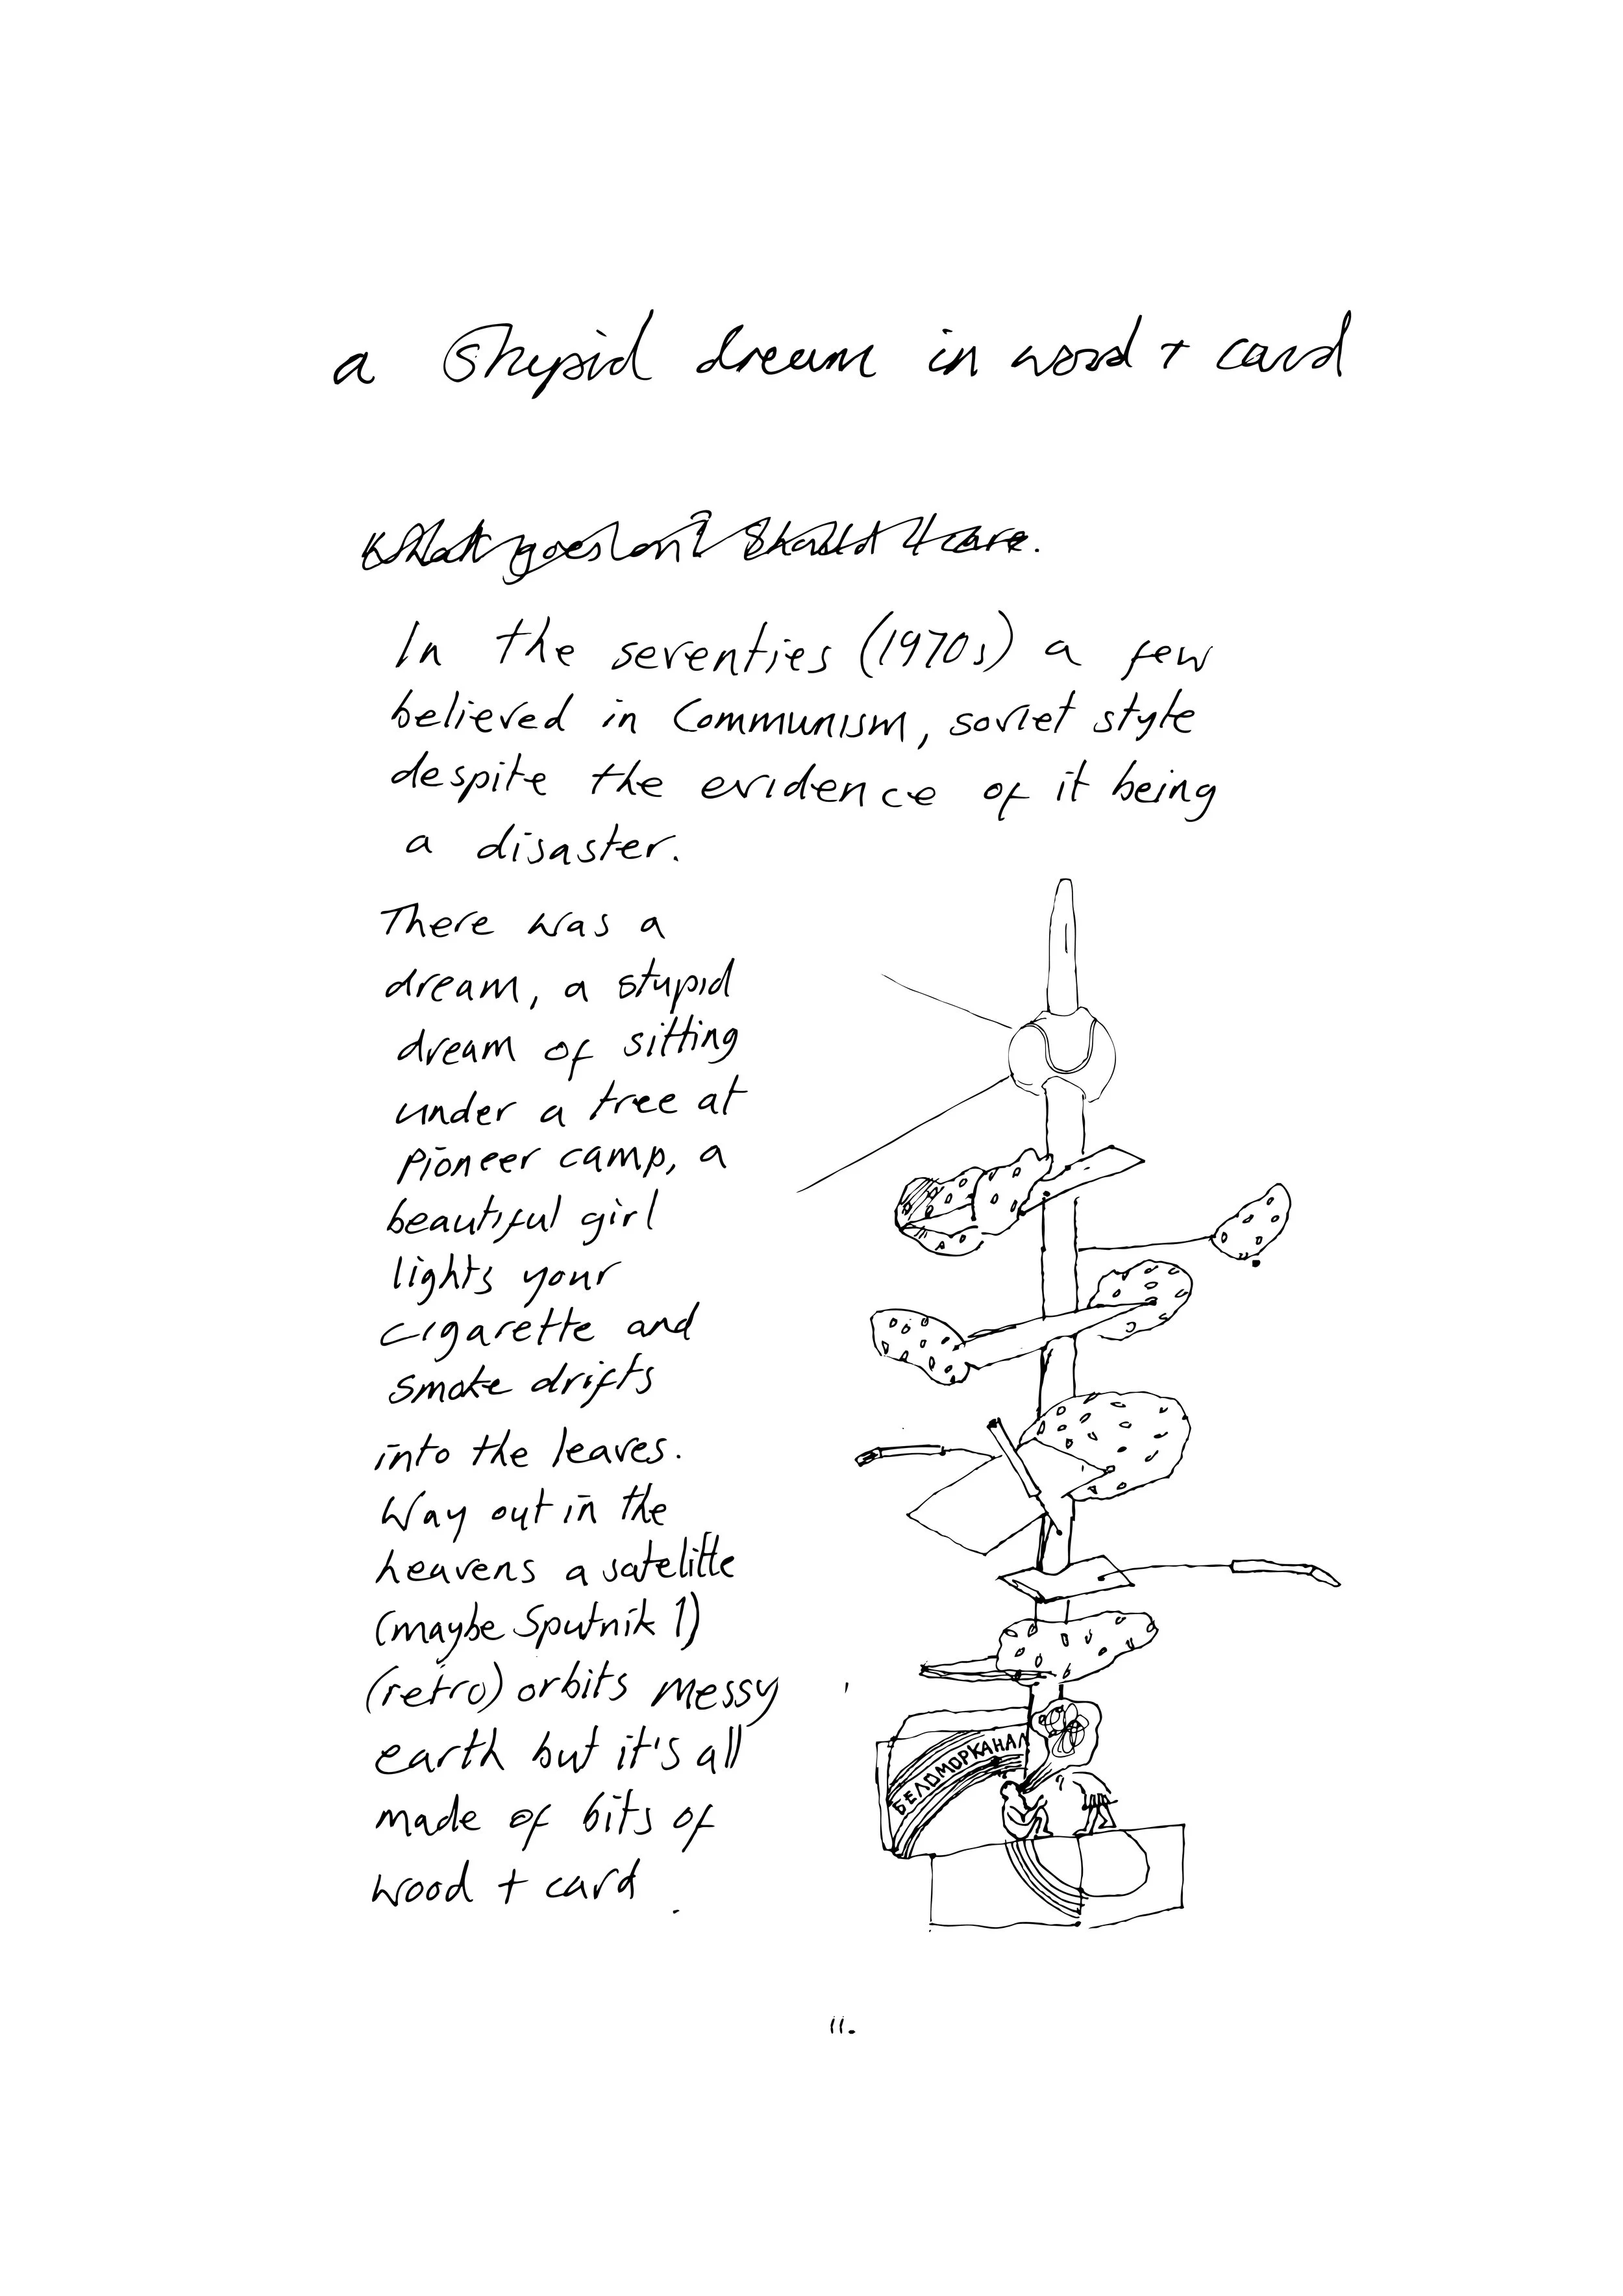 a stupid dream in wood + card
What goes on? Should I care.
In the seventies (1970s) a few
believed in Communism, soviet style
despite the evidence of it being
a disaster.
There was a
dream, a stupid
dream of sitting
under a tree at
pioneer camp, a
beautiful girl
lights your
cigarette and
smoke drifts
into the leaves.
Way out in the
heavens a satelitte
(maybe Sputnik 1)
(retro) orbits messy
earth but it's all
made of bits of
wood + card.
БЕЛОМОРКАНАЛ
11.